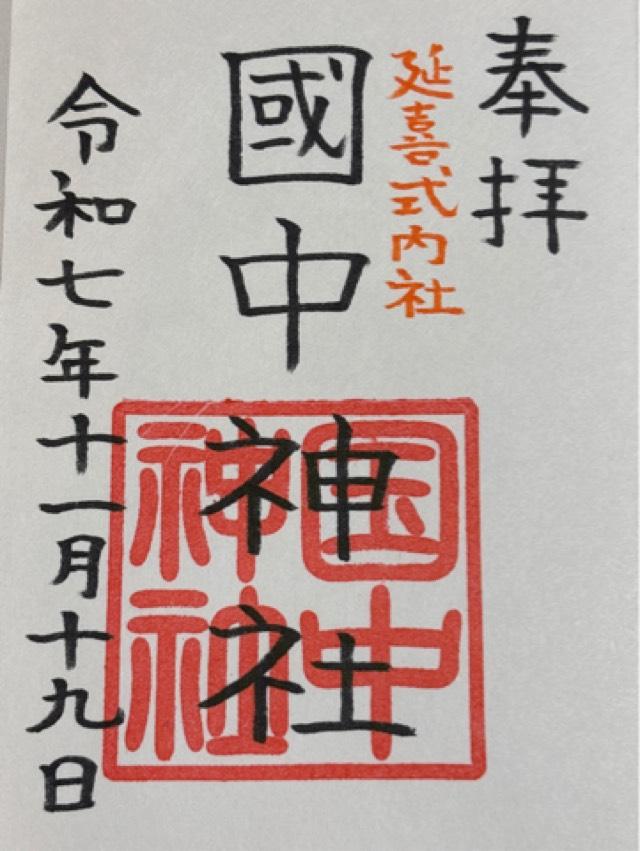 奉拝
延喜式内社
國中神社
国中神社
令和七年十一月十九日